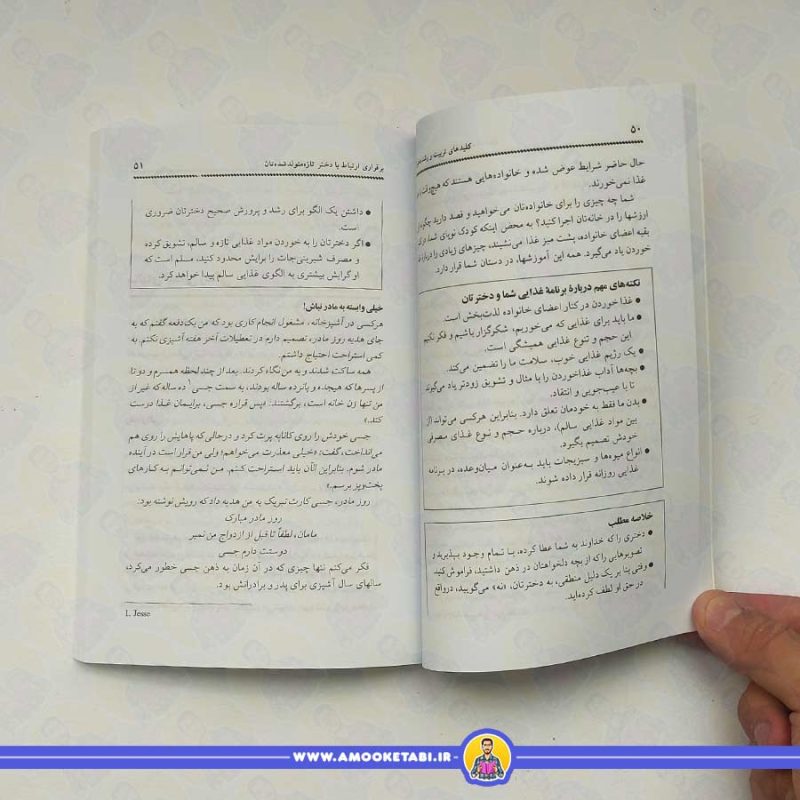 ۵۰
کلیدهای تربیت و
حال حاضر شرایط عوض شده و خانواده‌هایی هستند که هیچ‌وقت
غذا نمی‌خورند.
شما چه چیزی را برای خانواده‌تان می‌خواهید و قصد دارید چگونه
ارزشها را در خانه‌تان اجرا کنید؟ به محض اینکه کودک نوپای شما، برای
بقیه اعضای خانواده، پشت میز غذا می‌نشیند، چیزهای زیادی را دربارهٔ
خوردن یاد می‌گیرد. همه این آموزشها، در دستان شما قرار دارد.
نکته‌های مهم دربارهٔ برنامهٔ غذایی شما و دخترتان
● غذا خوردن در کنار اعضای خانواده لذت‌بخش است.
● ما باید برای غذایی که می‌خوریم، شکرگزار باشیم و فکر نکنیم
این حجم و تنوع غذایی همیشگی است.
● یک رژیم غذایی خوب، سلامت ما را تضمین می‌کند.
● بچه‌ها آداب غذاخوردن را با مثال و تشویق زودتر یاد می‌گیرند
تا با عیب‌جویی و انتقاد.
● بدن ما فقط به خودمان تعلق دارد. بنابراین هرکسی می‌تواند (از
بین مواد غذایی سالم)، درباره حجم و نوع غذای مصرفی
خودش تصمیم بگیرد.
● انواع میوه‌ها و سبزیجات باید به‌عنوان میان‌وعده، در برنامه
غذایی روزانه قرار داده شوند.
خلاصه مطلب
● دختری را که خداوند به شما عطا کرده، با تمام وجود بپذیرید و
تصویرهایی را که از بچه دلخواهتان در ذهن داشتید، فراموش کنید.
● وقتی بنا بر یک دلیل منطقی، به دخترتان، «نه» می‌گویید، درواقع
در حق او لطف کرده‌اید.
برقراری ارتباط با دختر تازه‌متولدشده‌تان
۵۱
● داشتن یک الگو برای رشد و پرورش صحیح دخترتان ضروری
است.
● اگر دخترتان را به خوردن مواد غذایی تازه و سالم، تشویق کرده
و مصرف شیرینی‌جات را برایش محدود کنید، مسلم است که
او گرایش بیشتری به الگوی غذایی سالم پیدا خواهد کرد.
خیلی وابسته به مادر نباش!
هرکسی در آشپزخانه، مشغول انجام کاری بود که من یک‌دفعه گفتم که به
جای هدیه روز مادر، تصمیم دارم در تعطیلات آخر هفته آشپزی نکنم. به
کمی استراحت احتیاج داشتم.
همه ساکت شدند و به من نگاه کردند. بعد از چند لحظه همسرم و دو تا
از پسرها که هیجده و پانزده ساله بودند، به سمت جسی۱ ده ساله که غیر از
من تنها زن خانه است، برگشتند. «پس قراره جسی، برایمان غذا درست
کند.»
جسی خودش را روی کاناپه پرت کرد و درحالی که پاهایش را روی هم
می‌انداخت، گفت: «خیلی معذرت می‌خواهم؛ ولی من قرار است در آینده
مادر شوم. بنابراین الآن باید استراحت کنم. من نمی‌توانم به کارهای
پخت‌وپز برسم.»
روز مادر، جسی کارت تبریک به من هدیه داد که رویش نوشته بود.
روز مادر مبارک
مامان، لطفاً تا قبل از ازدواج من نمیر
دوستت دارم جسی
فکر می‌کنم تنها چیزی که در آن زمان به ذهن جسی خطور می‌کرد،
سالهای سال آشپزی برای پدر و برادرانش بود.
1. Jesse
WWW.AMOOKETABI.IR